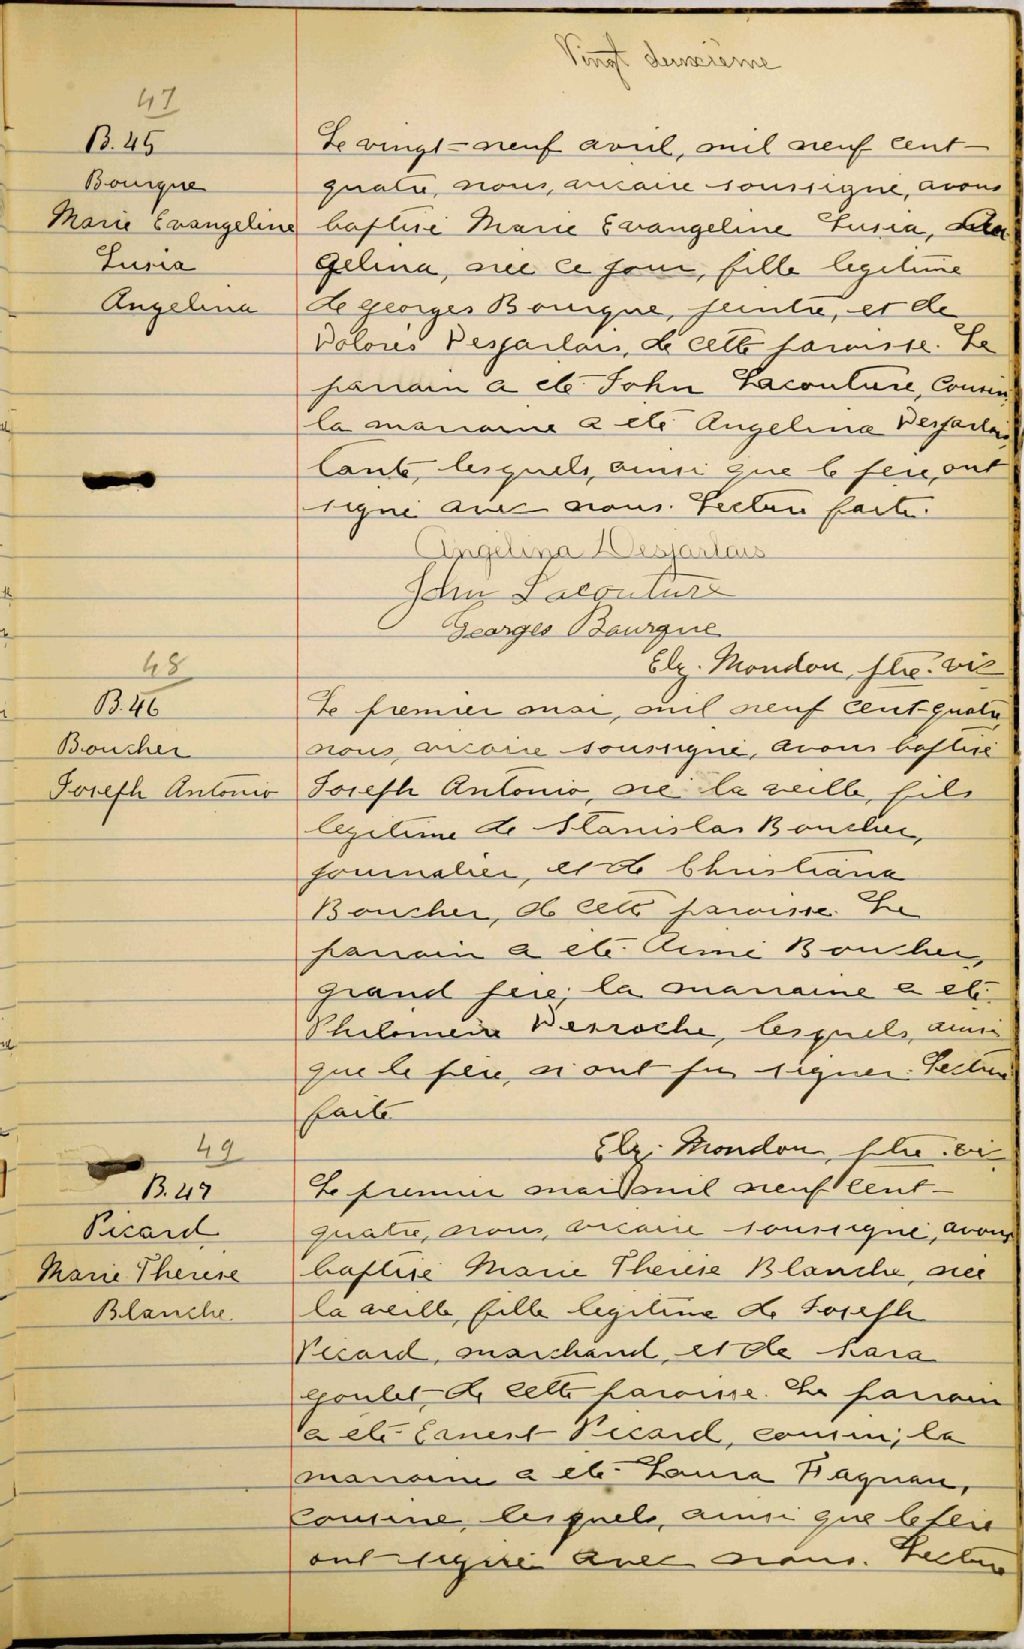 Vingt deuxième
47
B. 45
Bourque
Marie Evangeline
Lusia
Angelina
Le vingt-neuf avril, mil neuf cent-
quatre, nous, vicaire soussigné, avons
baptisé Marie Evangeline Lusia, An-
gelina, née ce jour, fille legitime
de Georges Bourque, peintre, et de
Dolorès Desjarlais, de cette paroisse. Le
parrain a été John Lacouture, Cousin;
la marraine a été Angelina Desjarlais,
tante, lesquels, ainsi que le père, ont
signé avec nous. Lecture faite.
Angélina Desjarlais
John Lacouture
Georges Bourque
Elz. Mondou, ptre. vic
48
B. 46
Boucher
Joseph Antonio
Le premier mai, mil neuf cent-quatre,
nous, vicaire soussigné, avons baptisé
Joseph Antonio, né la veille, fils
legitime de Stanislas Boucher,
journalier, et de Christiana
Boucher, de cette paroisse. Le
parrain a été Aimé Boucher,
grand père; la marraine a été
Philomène Desroche, lesquels, ainsi
que le père, n'ont pu signer. Lecture
faite
Elz. Mondou, ptre. vic.
49
B. 47
Picard
Marie Therese
Blanche.
Le premier mai, mil neuf cent-
quatre, nous, vicaire soussigné, avons
baptisé Marie Therèse Blanche, née
la veille, fille legitime de Joseph
Picard, marchand, et de Sara
Goulet, de cette paroisse. Le parrain
a été Ernest Picard, cousin; la
marraine a été Laura Fagnan,
cousine, lesquels, ainsi que le père
ont signé avec nous. Lecture